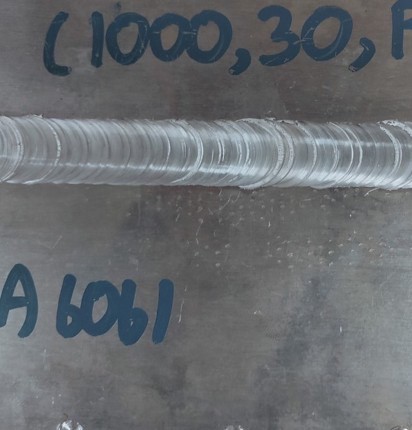 (1000,30,F
A6061